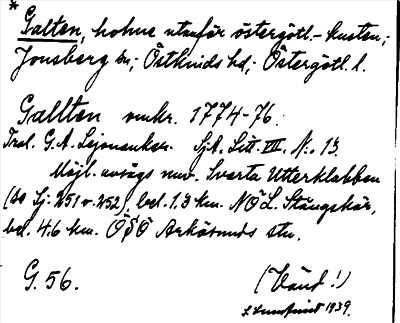 * Galten, holme utanför östergötl.-kusten;
Jonsberg sn; Östkinds hd; Östergötl. l.
Gallten omkr. 1774-76.
Trol. G. A. Lejonanker. Sjk. Litt. VII. N:o 13.
Möjl. avsågs nuv. Svarta Utterklabben
(se Sj: 251 o. 252), bel. 1.3 km. NÖ L. Stångskär,
bel. 4.6 km. ÖSÖ Arkösunds stn.
G. 56.
(Vänd!)
1939.